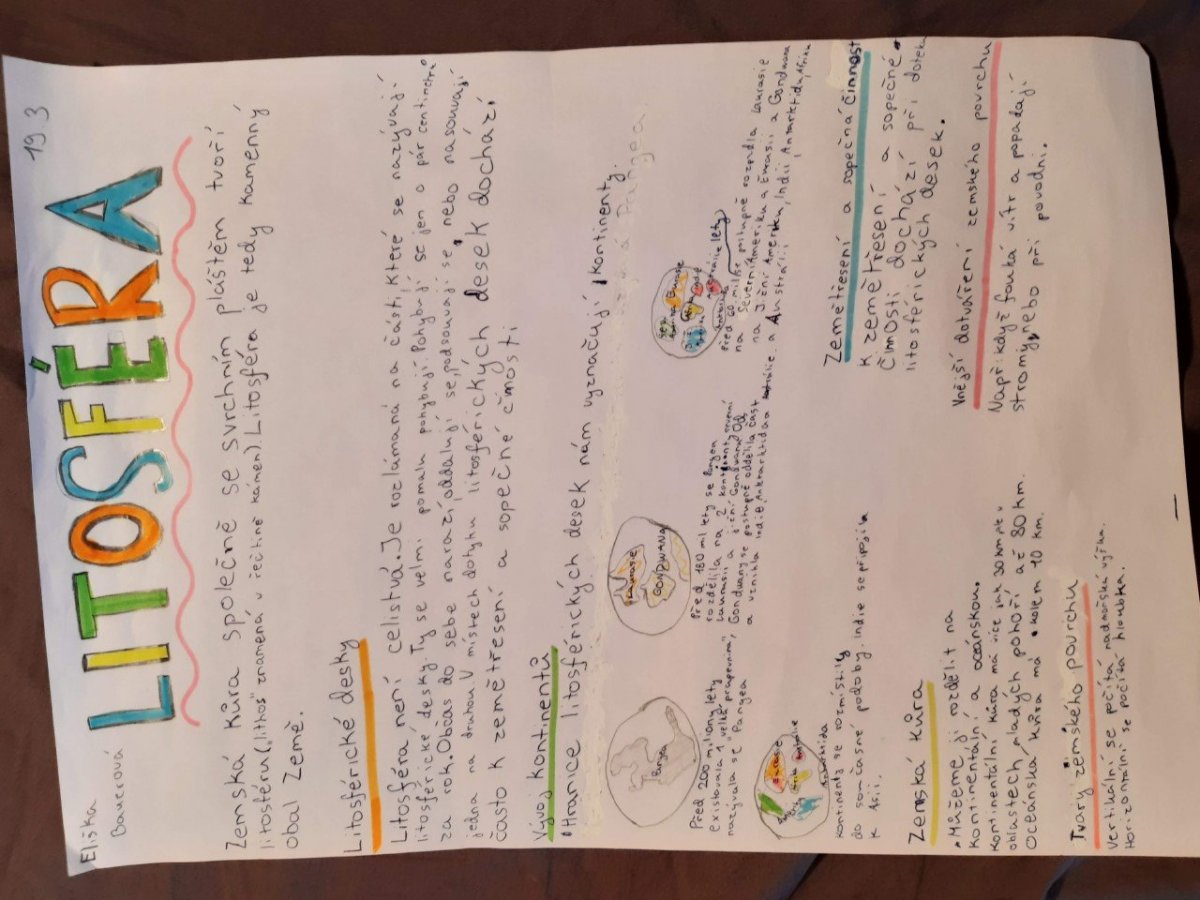 Eliška
Bauerová
19.3
LITOSFÉRA
Zemská kůra společně se svrchním pláštěm tvoří
litosféru („lithos" znamená v řečtině kámen). Litosféra je tedy kamenný
obal Země.
Litosférické desky
Litosféra není celistvá. Je rozlámaná na části, které se nazývají
litosférické desky Ty se velmi pomalu pohybují. Pohybují se jen o pár centimetrů
za rok. Občas do sebe narazí, oddalují se, podsouvají se, nebo nasouvají
jedna na druhou. V místech dotyku litosférických desek dochází
často k zemětřesení a sopečné čínosti
Vývoj kontinentů
• Hranice litosférických desek nám vyznačují kontinenty.
Pangea
Před 200 miliony lety
existovala 1 velké
nazývala se "Pangea
LAURASIE
GONDWANA
Před 180 mil lety se Pangea
rozdělila na 2 kontinenty severní
Laurasii a jižní Gondwanu. Od
Gondwany se postupně oddělila část
a vznikla Indie, Antarktida a
Před 60 mil. se postupně rozpadla Laurasie
na Severní Ameriku a Eurasii a Gondwana
na Jižní Ameriku, Indii Antarktidu, Afriku
a Austrálii.
Eurasie
Antarktida
kontinenty se rozmístily
do současné podoby. Indie se připojila
k Asii.
Zemská kůra
• Můžeme ji rozdělit na
kontinentální a oceánskou.
Kontinentální kůra má více jak 30 km a v
oblastech mladých pohoří až 80 km.
Oceánská kůra má kolem 10 km.
Tvary zemského povrchu
Vertikální se počítá nadmořská výška.
Horizontální se počítá hloubka.
Zemětřesení a sopečná činnost
K zemětřesení a sopečné
činnosti dochází při doteku
litosférických desek.
Vnější dotváření zemského povrchu
Např: když fouká vítr a popadají
stromy, nebo při povodni.